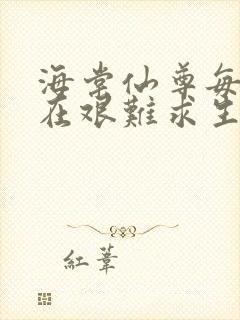 海棠仙尊每
在艰難求生
紅葦